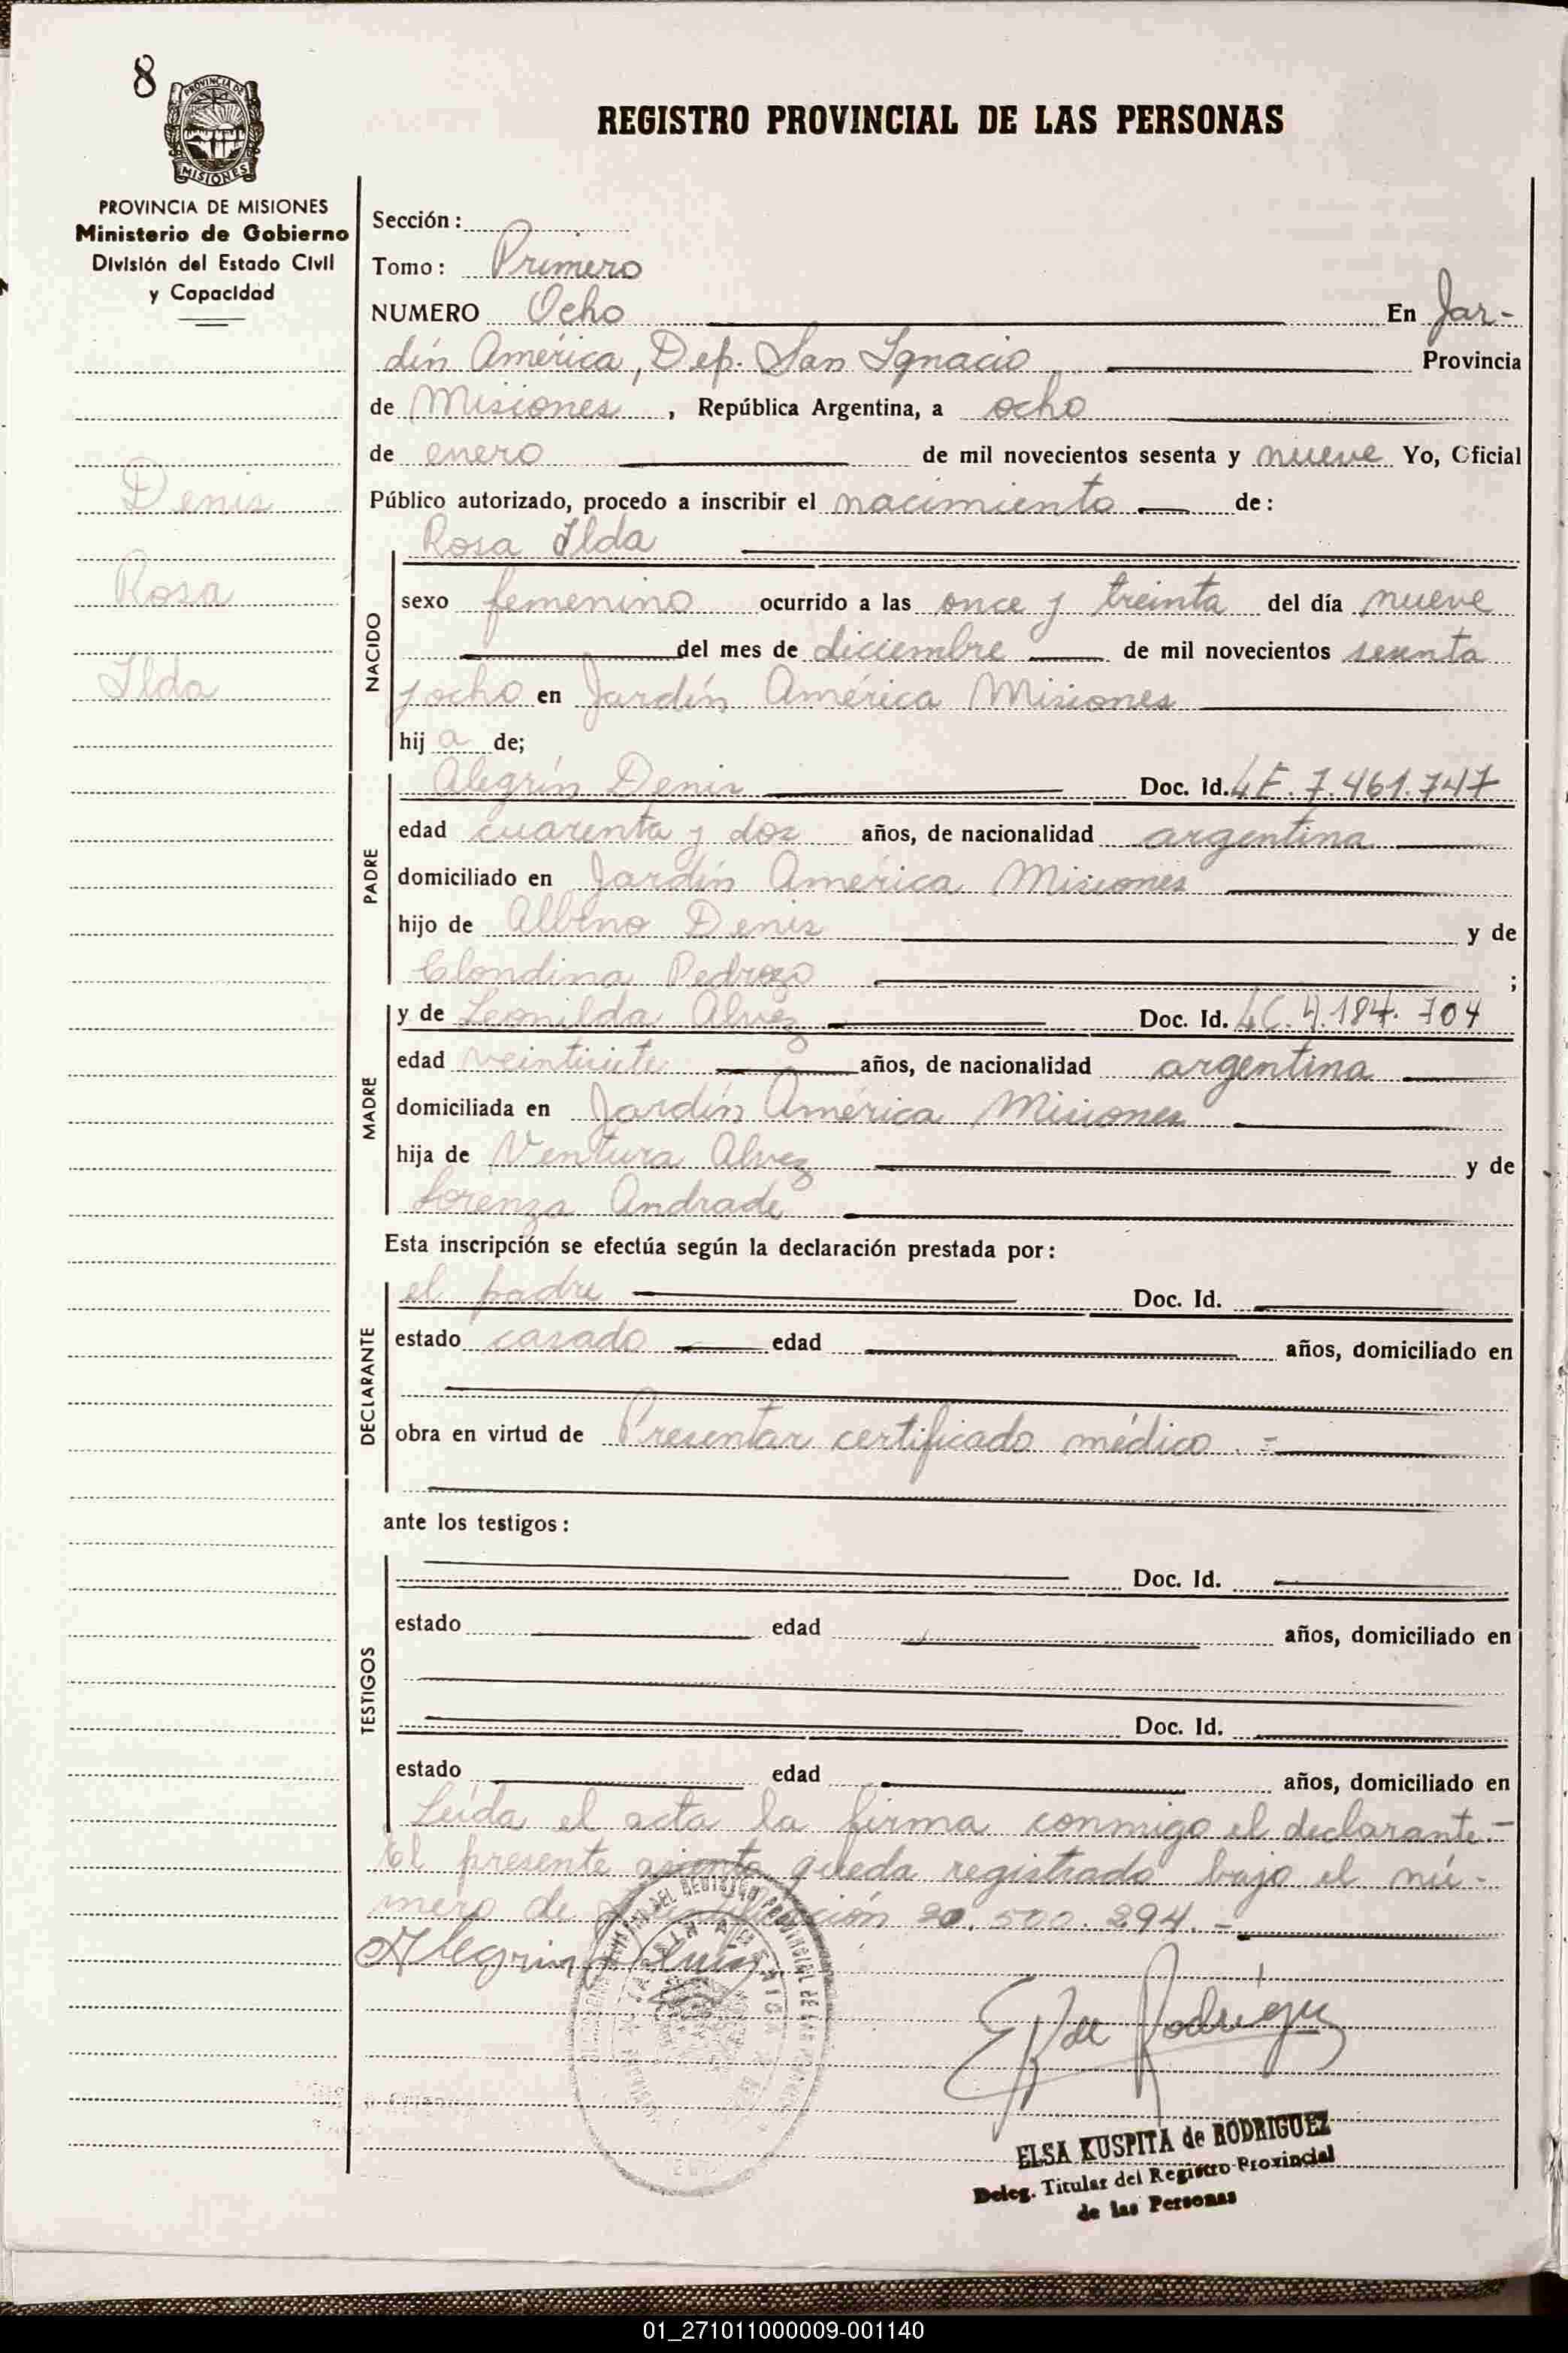 8
PROVINCIA DE
MISIONES
REGISTRO PROVINCIAL DE LAS PERSONAS
PROVINCIA DE MISIONES
Ministerio de Gobierno
División del Estado Civil
y Capacidad
Denis
Rosa
Ilda
Sección:
Tomo: Primero
NUMERO Ocho En Jar-
dín América, Dep. San Ignacio Provincia
de Misiones, República Argentina, a ocho
de enero de mil novecientos sesenta y nueve Yo, Oficial
Público autorizado, procedo a inscribir el nacimiento de:
Rosa Ilda
NACIDO
sexo femenino ocurrido a las once y treinta del día nueve
del mes de diciembre de mil novecientos sesenta
y ocho en Jardín América Misiones
hij a de;
PADRE
Alegrín Denis Doc. Id. LE. 7.461.747
edad cuarenta y dos años, de nacionalidad argentina
domiciliado en Jardín América Misiones
hijo de Albino Denis y de
Clondina Pedrozo ;
MADRE
y de Leonilda Alvez Doc. Id. LC. 4.184.704
edad veintisiete años, de nacionalidad argentina
domiciliada en Jardín América Misiones
hija de Ventura Alvez y de
Lorenza Andrade
Esta inscripción se efectúa según la declaración prestada por:
DECLARANTE
el padre Doc. Id.
estado casado edad años, domiciliado en
obra en virtud de Presentar certificado médico.=
ante los testigos:
TESTIGOS
Doc. Id.
estado edad años, domiciliado en
Doc. Id.
estado edad años, domiciliado en
Leída el acta la firma conmigo el declarante.-
El presente asiento queda registrado bajo el nú-
mero de 20.500.294.-
Alegrin
E K de Rodriguez
ELSA KUSPITA de RODRIGUEZ
Deleg. Titular del Registro Provincial
de las Personas
01_271011000009-001140